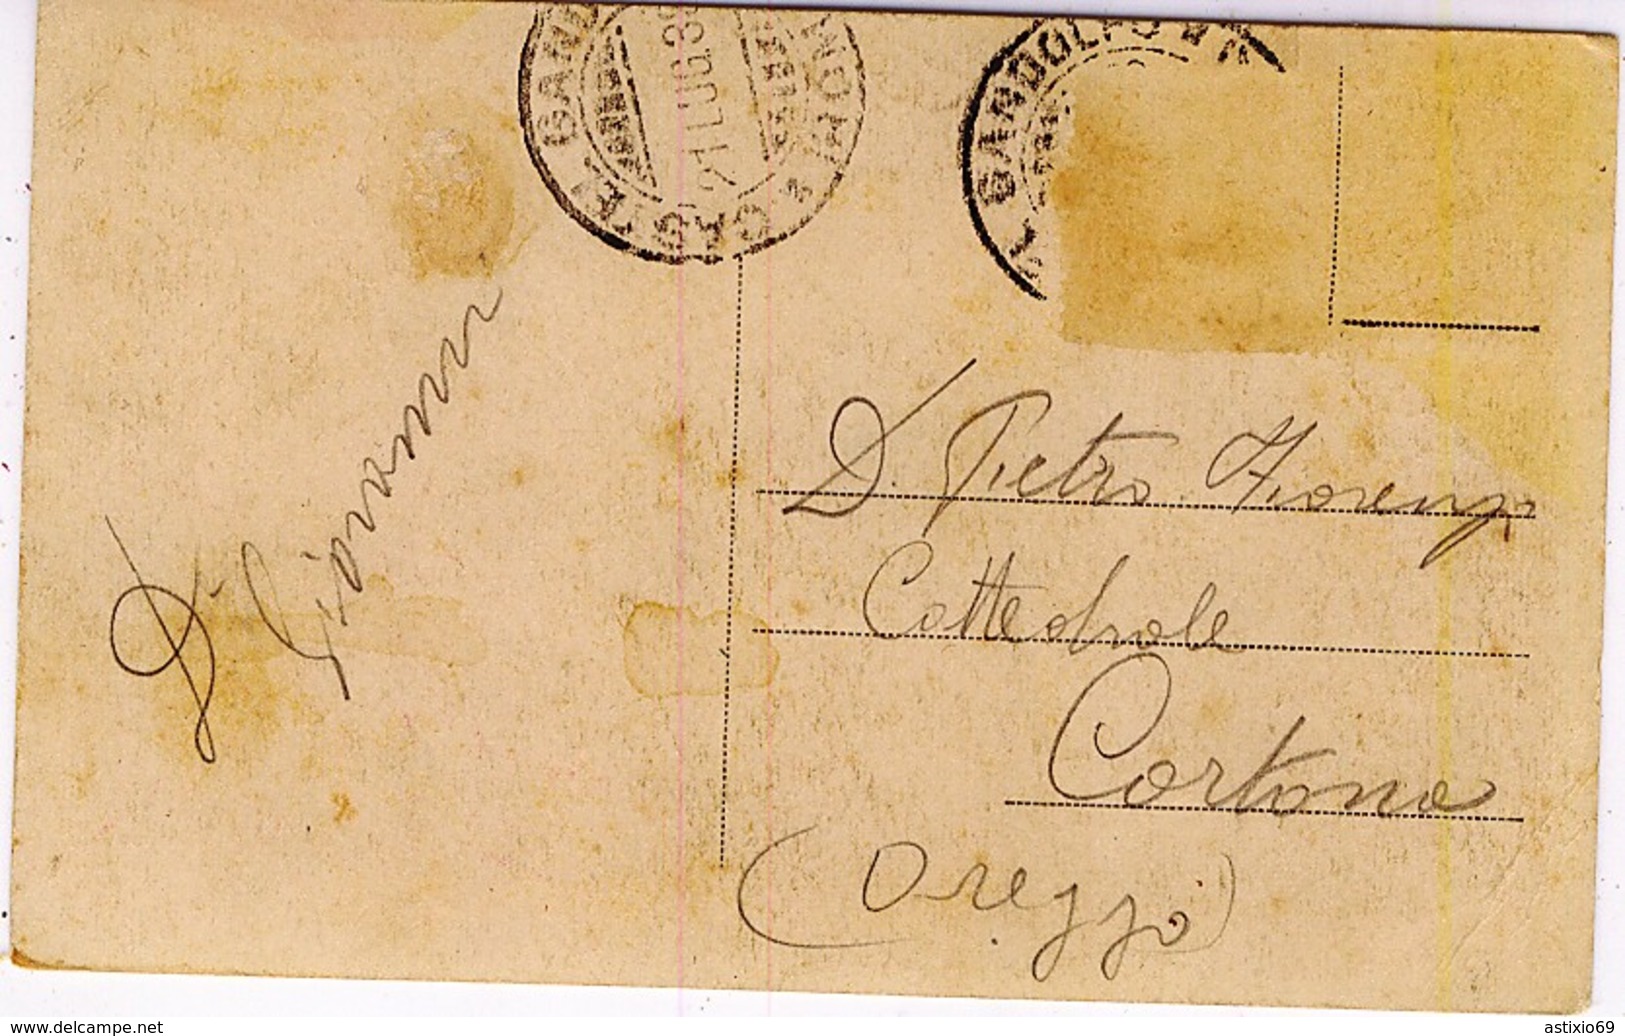 CASTEL GAND
ROMA
21 LUG.3
GANDOLFO
D. Giovanni
D. Pietro Fiorenzi
Cattedrale
Cortona
(Arezzo)
www.delcampe.net
astixio69